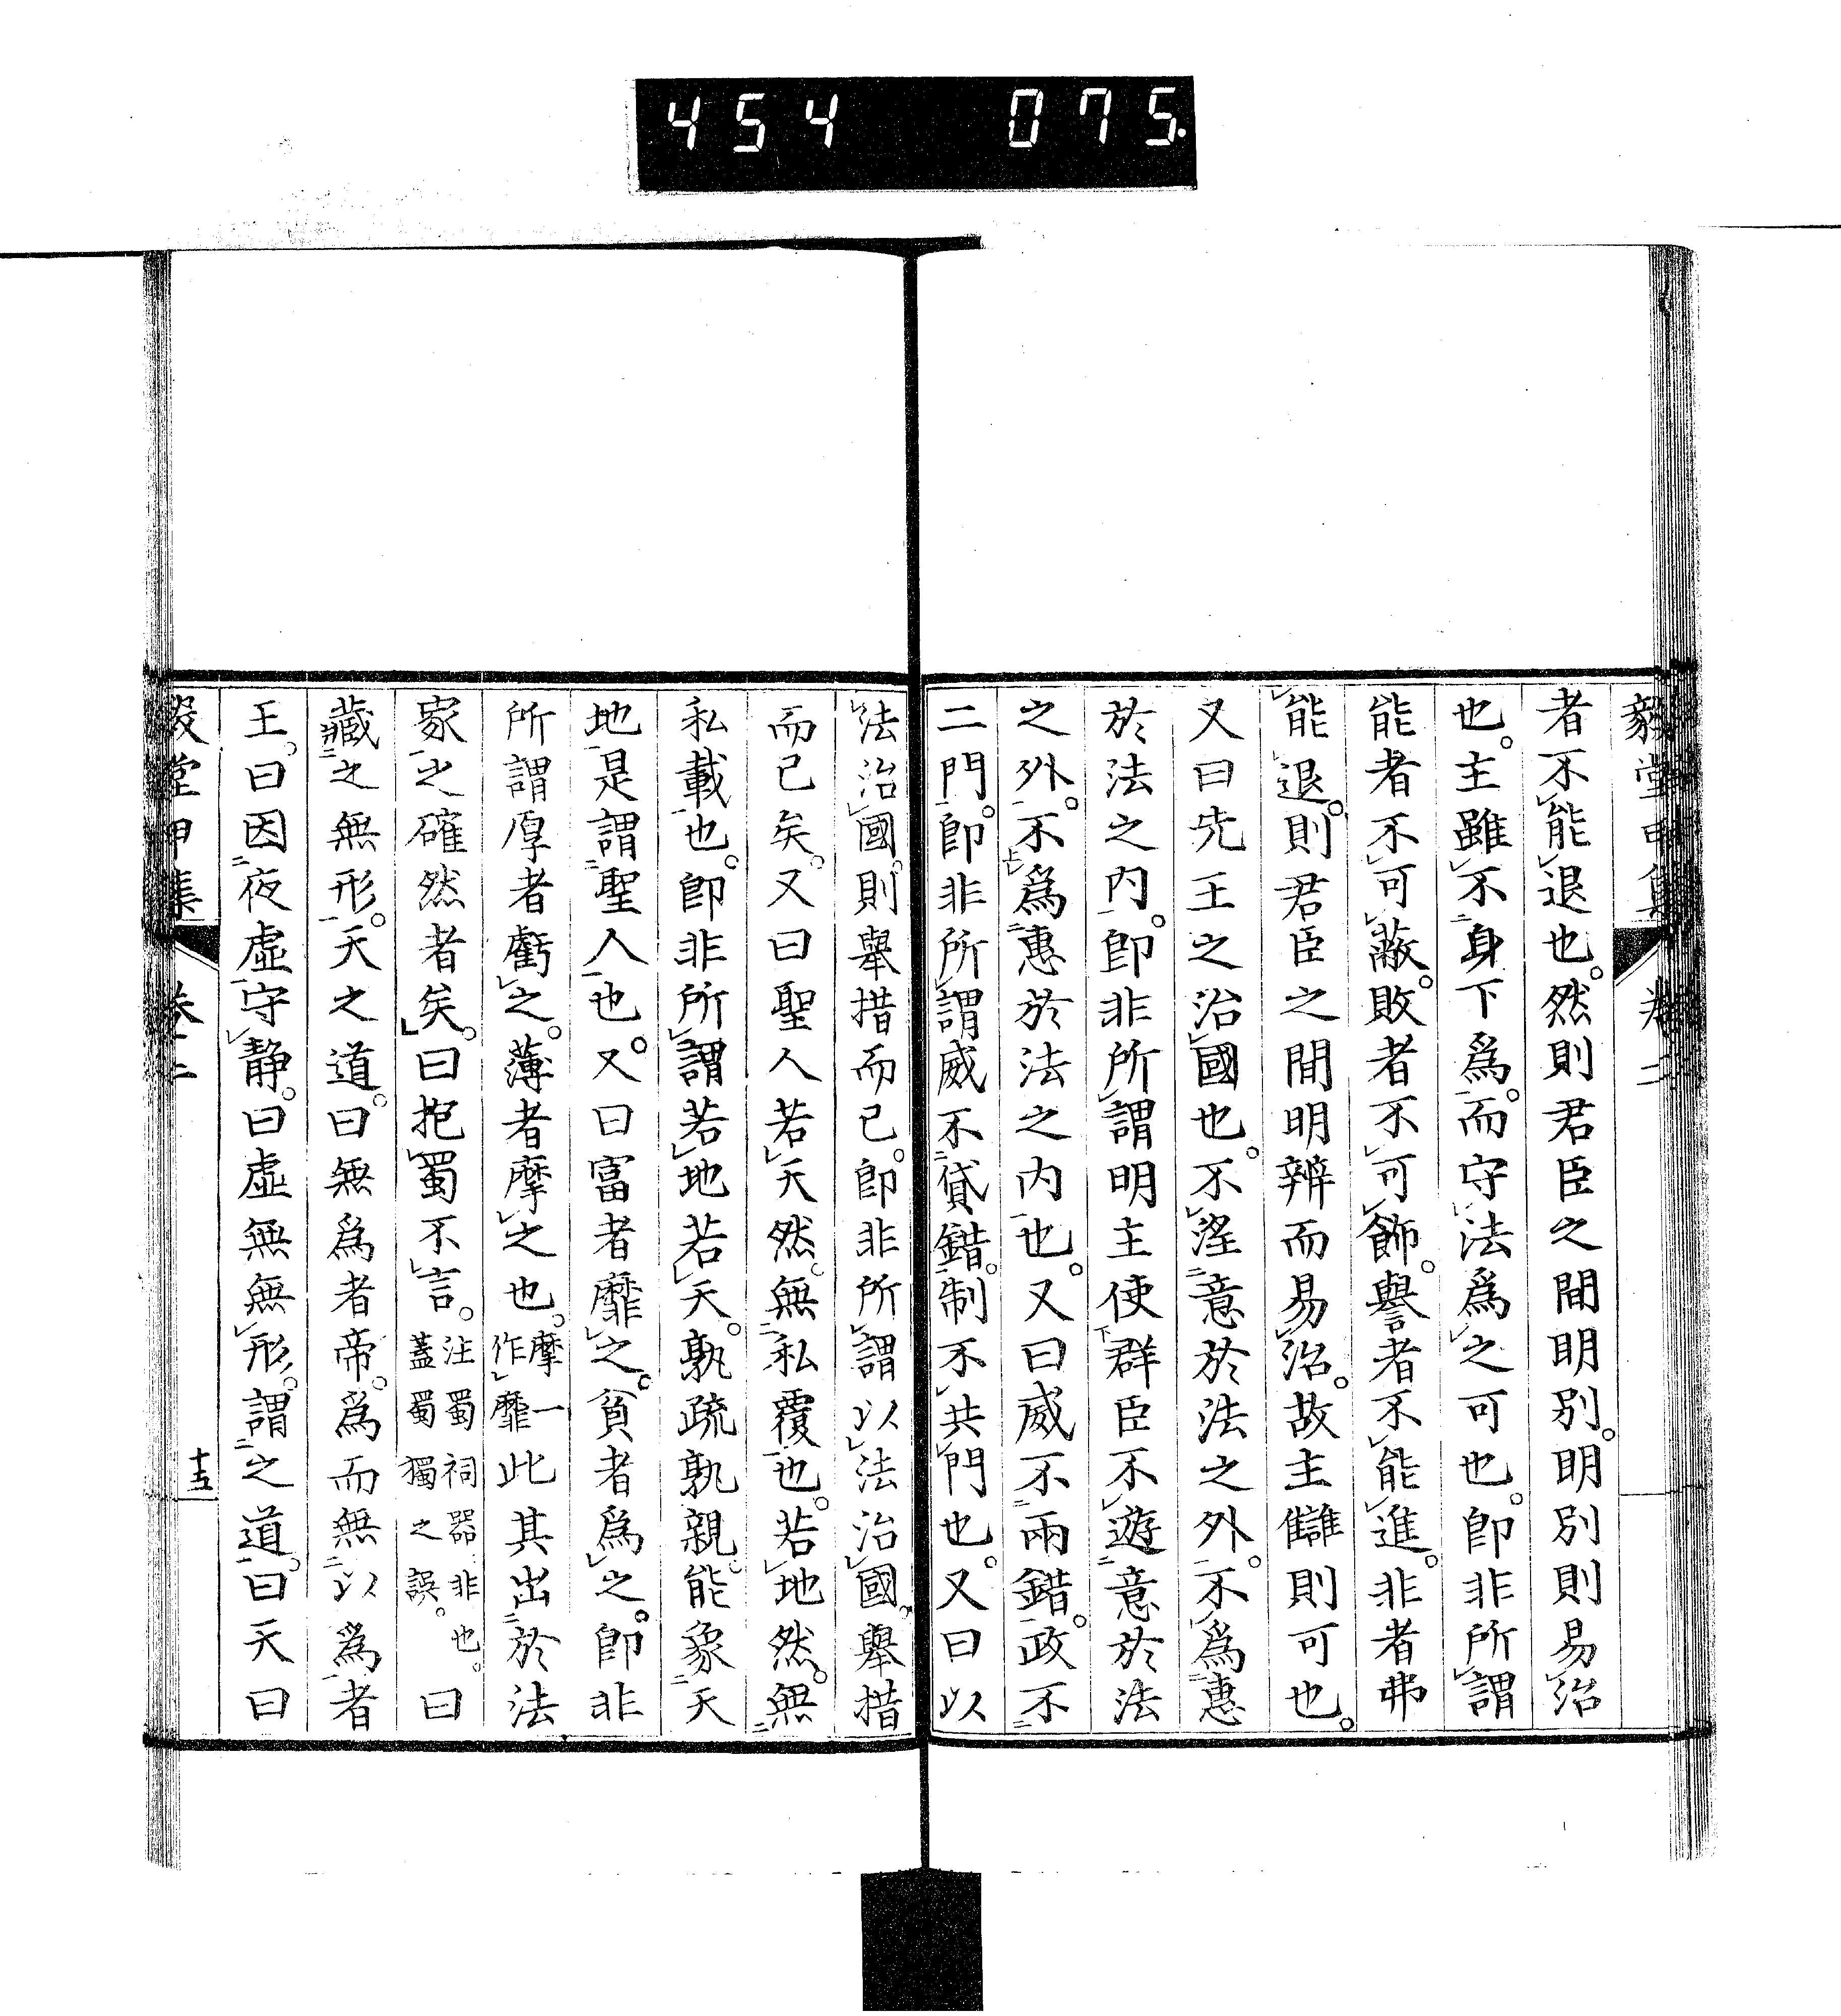 454 075.
毅堂甲集 卷二
者不能退也。然則君臣之間明別。明別則易治
也。主雖不身下爲。而守法爲之可也。卽非所謂
能者不可蔽。敗者不可飾。譽者不能進。非者弗
能退。則君臣之間明辨而易治。故主讎則可也。
又曰先王之治國也。不淫意於法之外。不爲惠
於法之內。卽非所謂明主使群臣不遊意於法
之外。不爲惠於法之內也。又曰威不兩錯。政不
二門。卽非所謂威不貸錯。制不共門也。又曰以
法治國。則舉措而已。卽非所謂以法治國。舉措
而已矣。又曰聖人若天然。無私覆也。若地然。無
私載也。卽非所謂若地若天。孰疏孰親。能象天
地是謂聖人也。又曰富者靡之。貧者爲之。卽非
所謂厚者虧之。薄者摩之也。摩一作靡此其出於法
家之確然者矣。曰抱蜀不言。注蜀祠器非也。蓋蜀獨之誤。曰
藏之無形。天之道。曰無爲者帝。爲而無以爲者
王。曰因夜虛守靜。曰虛無無形。謂之道。曰天曰
毅堂甲集 卷二 十五